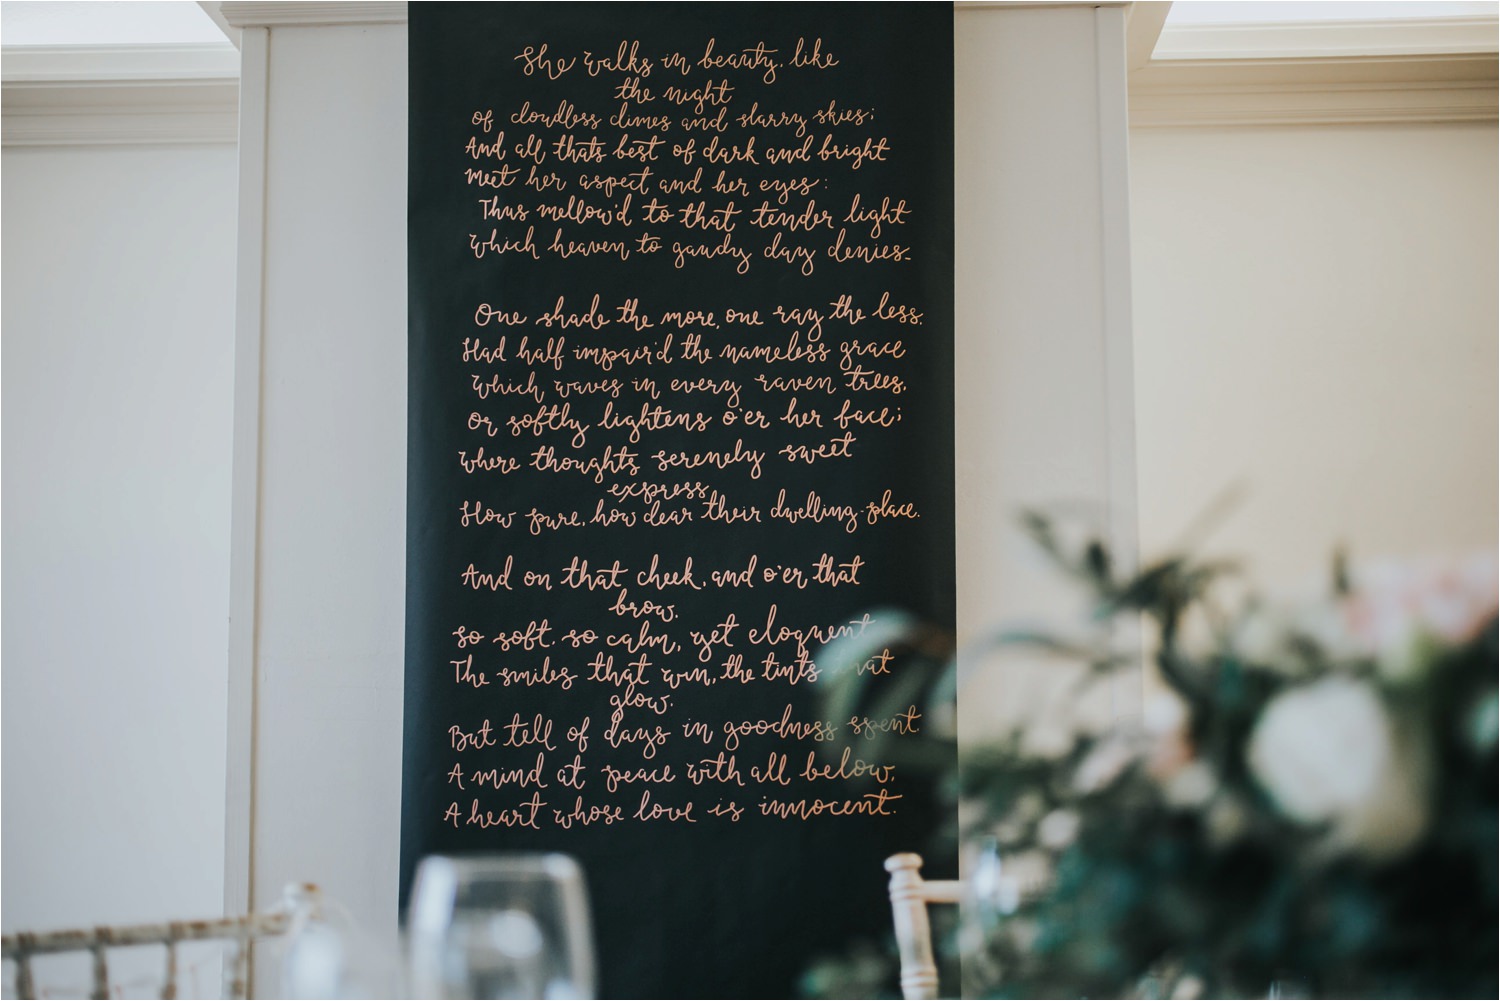 She walks in beauty, like
the night
of cloudless climes and starry skies;
And all thats best of dark and bright
meet her aspect and her eyes:
Thus mellow'd to that tender light
which heaven to gaudy day denies.
One shade the more, one ray the less,
Had half impair'd the nameless grace
which waves in every raven tress,
or softly lightens o'er her face;
where thoughts serenely sweet
express
How pure, how dear their dwelling-place.
And on that cheek, and o'er that
brow,
so soft, so calm, yet eloquent
The smiles that win, the tints that
glow,
But tell of days in goodness spent,
A mind at peace with all below,
A heart whose love is innocent.